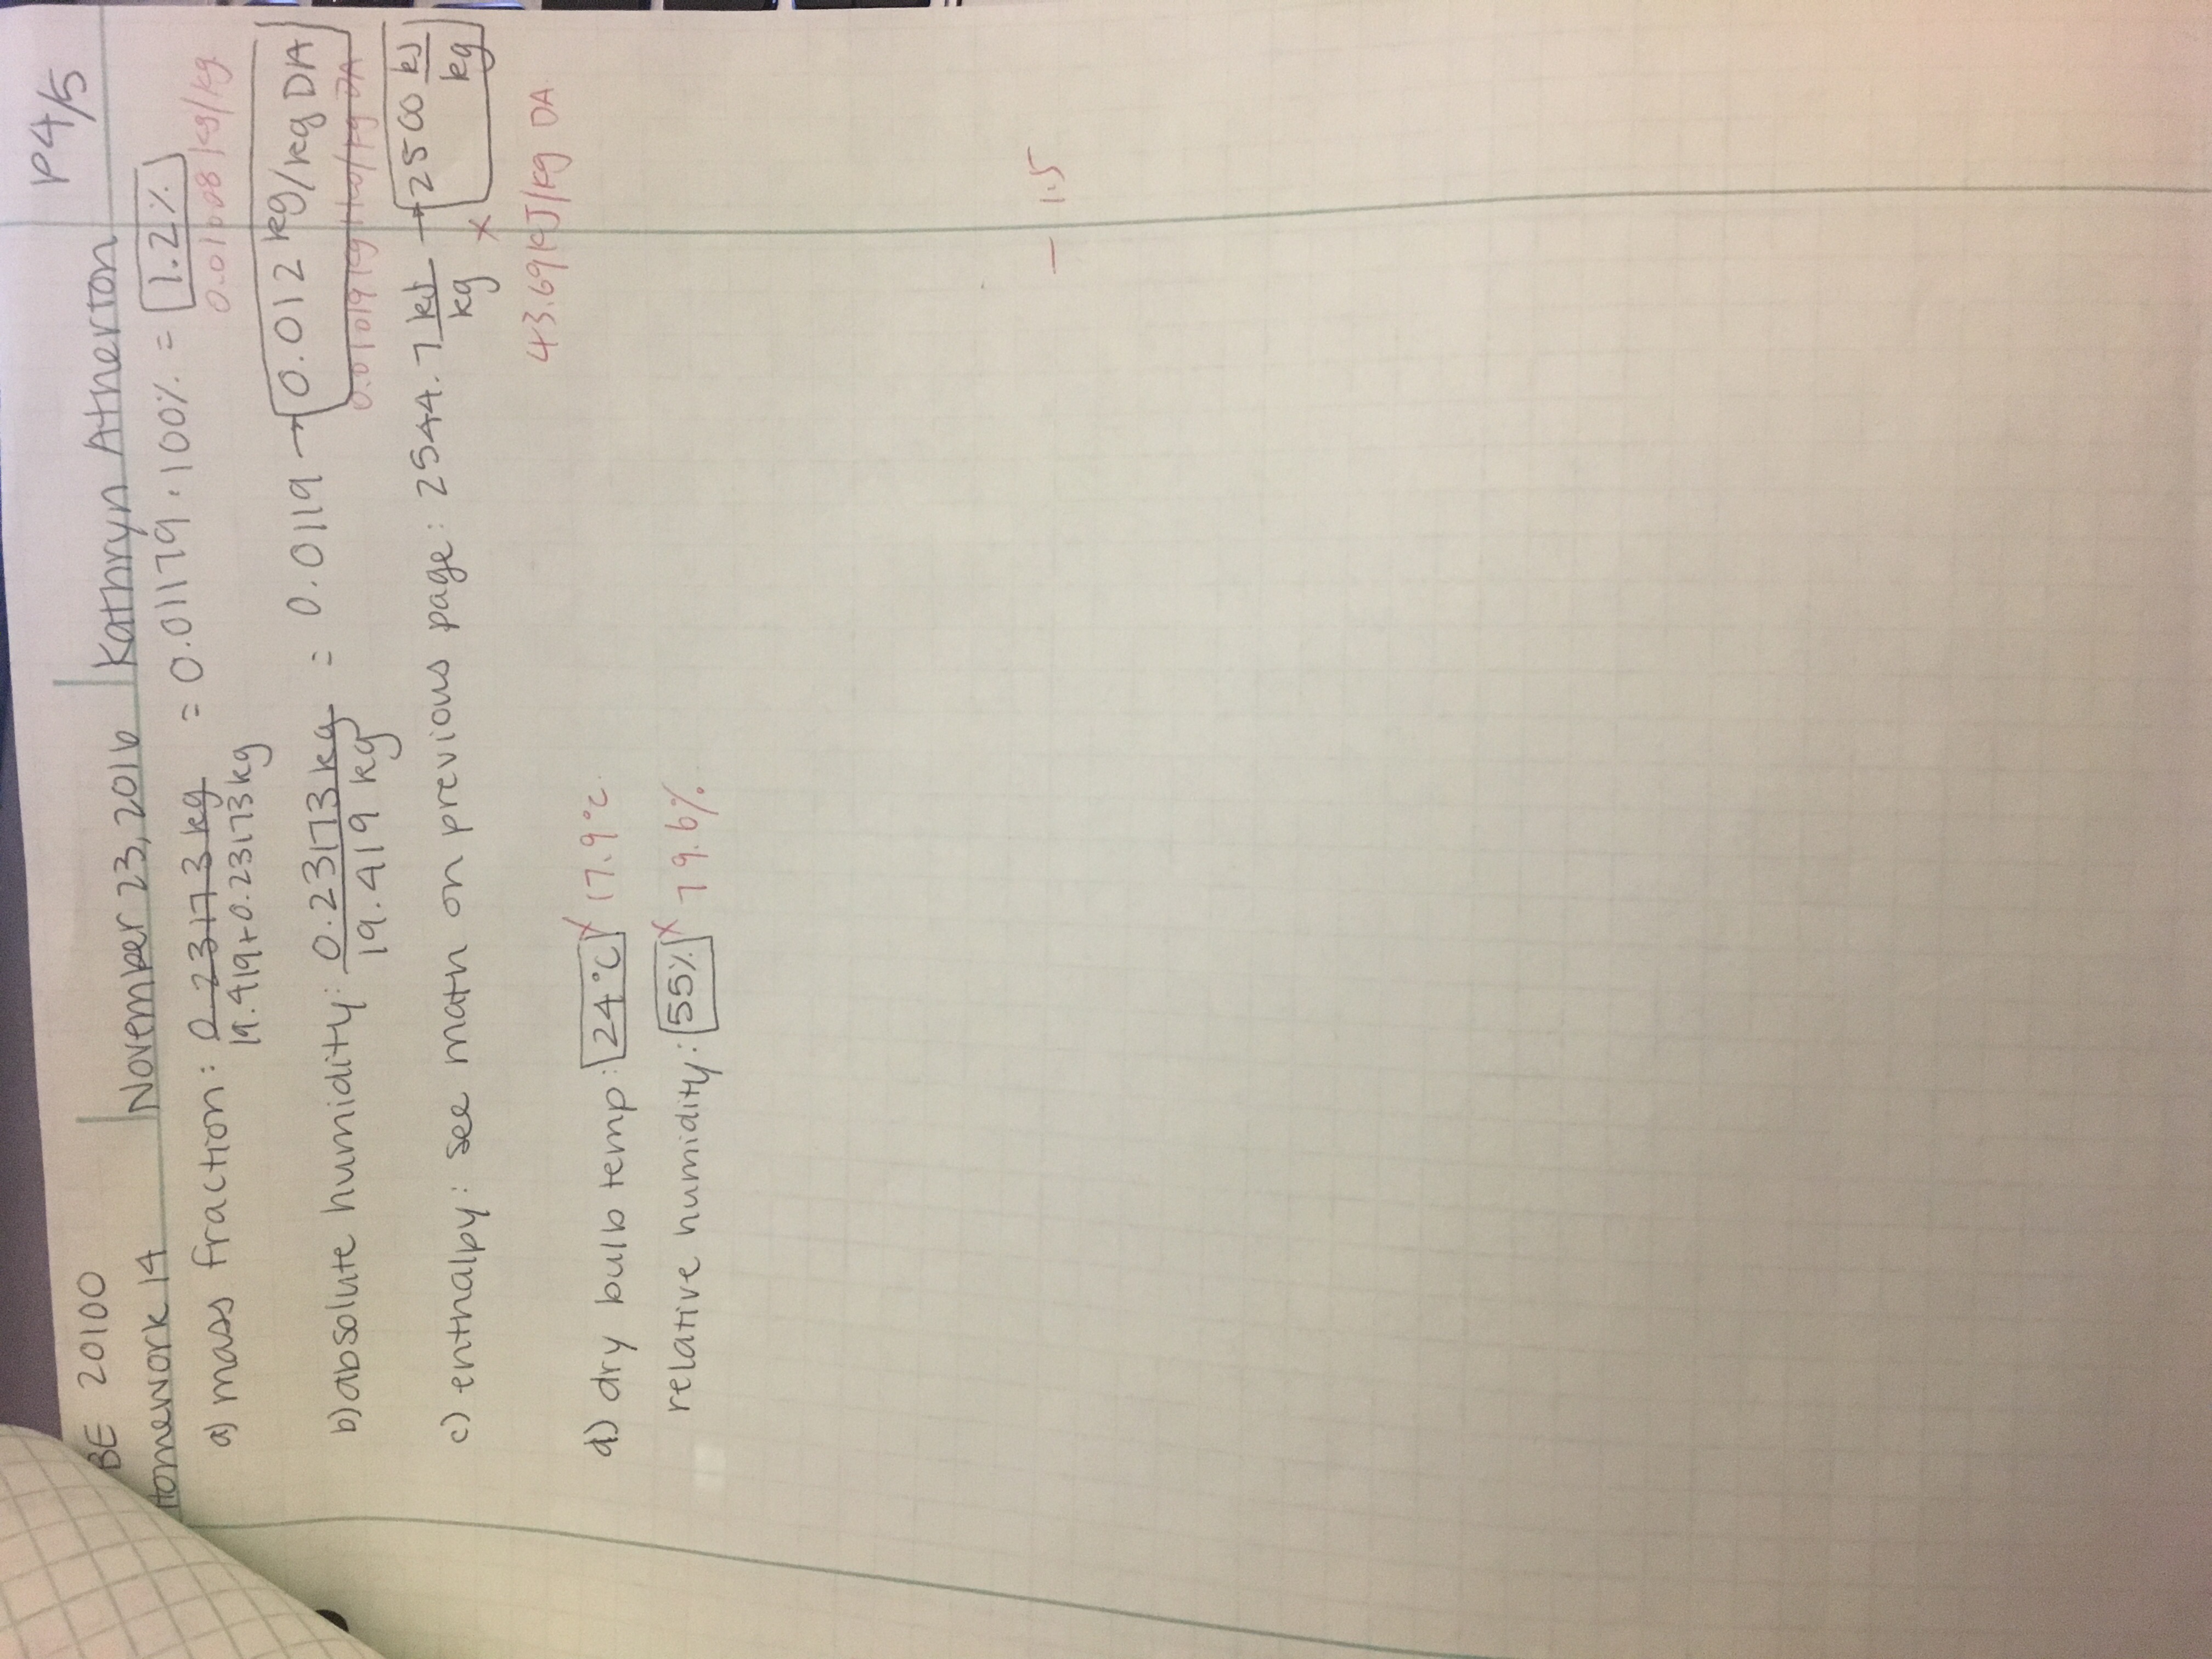 P4/5
BE 20100
Homework 14
November 23, 2016
Kathryn Atherton
a) mass fraction: 0.23173 kg / 19.419 + 0.23173 kg = 0.01179 · 100% = 1.2%
0.01008 kg/kg
b) absolute humidity: 0.23173 kg / 19.419 kg = 0.0119 → 0.012 kg/kg DA
0.01019 kg H2O/kg DA
c) enthalpy: see math on previous page: 2544.7 kJ/kg → 2500 kJ/kg
x
43.69 kJ/kg DA
d) dry bulb temp: 24°C x 17.9°C
relative humidity: 55% x 79.6%
- 1.5